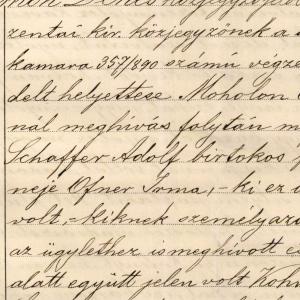 zentai kir. közjegyzőnek a
kamara 357/890 számú végze
delt helyettese Moholon
nál meghívás folytán m
Schaffer Adolf birtokos
neje Ofner Irma, - ki ez
volt, - kiknek személyaz
az ügylethez is meghivott e
alatt együtt jelen volt Kohn